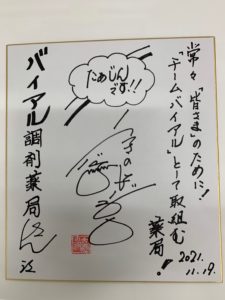 常々"皆さま"のために!
「チームバイアル」として取組む
薬局!
2021.
11.19.
たあじん
です!!
バイアル調剤薬局さん江